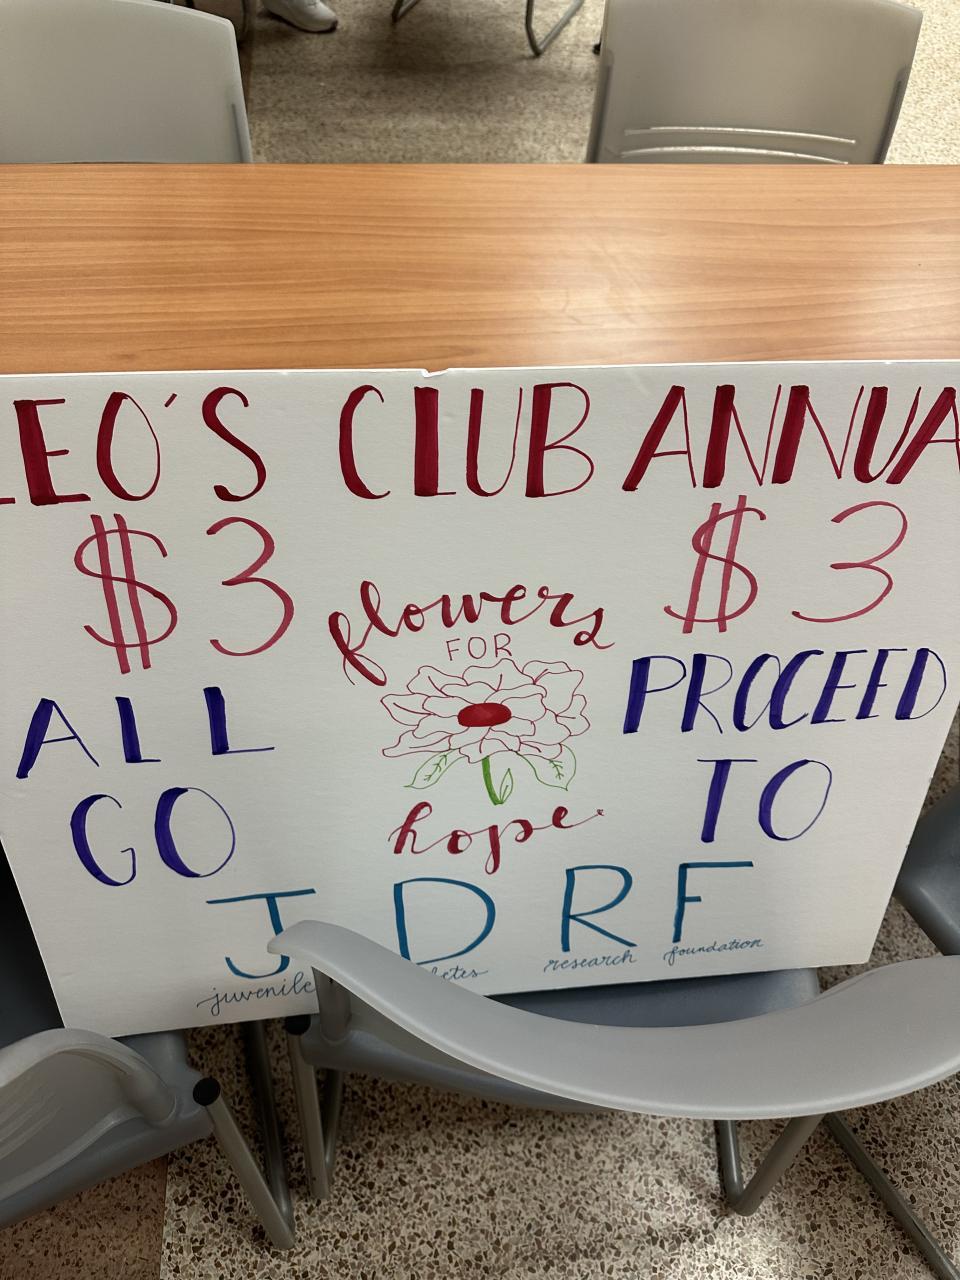 LEO'S CLUB ANNUA
$3 flowers $3
FOR
ALL PROCEED
GO hope TO
JDRF
juvenile betes research foundation